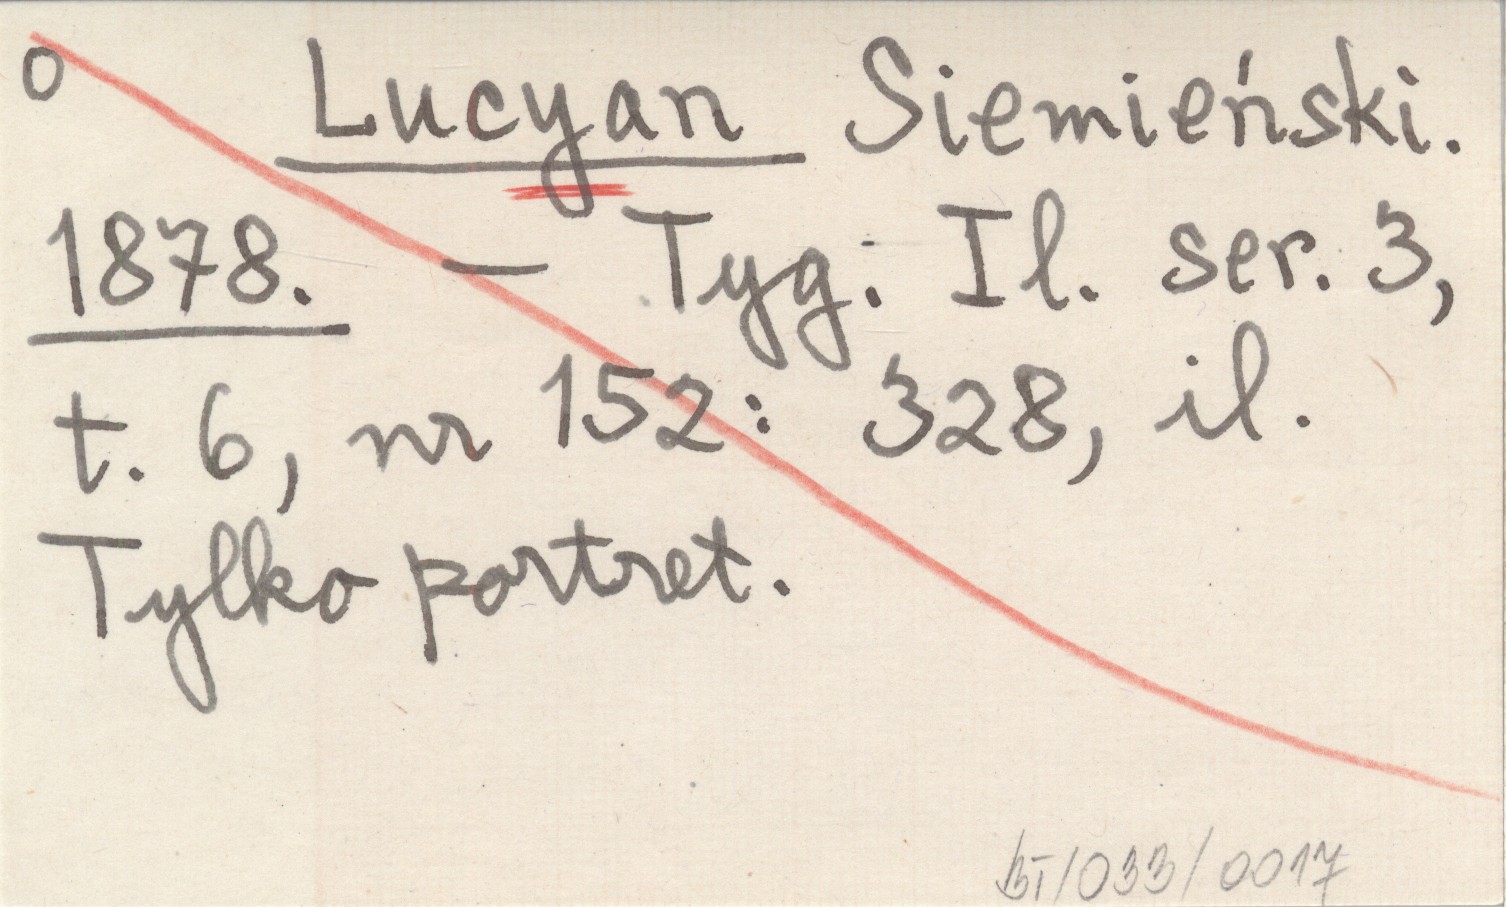 o Lucyan Siemieński.
1878. — Tyg. Il. ser. 3,
t. 6, nr 152: 328, il.
Tylko portret.
BI/033/0017